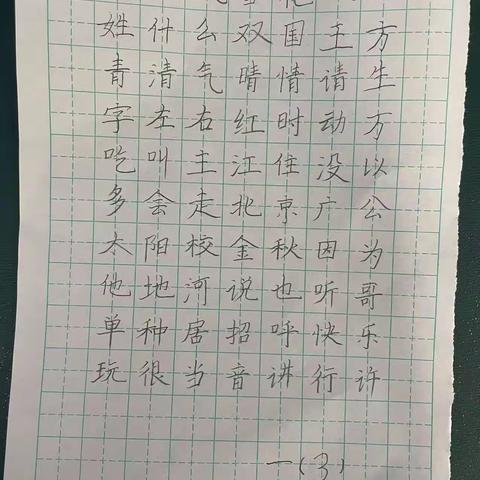 姓什么双国王方
青清气晴情请生
字左右红时动万
吃叫主江住没以
多会走北京广公
太阳校金秋因为
他地河说也听哥
单种居招呼快乐
玩很当音讲行许
一(3)